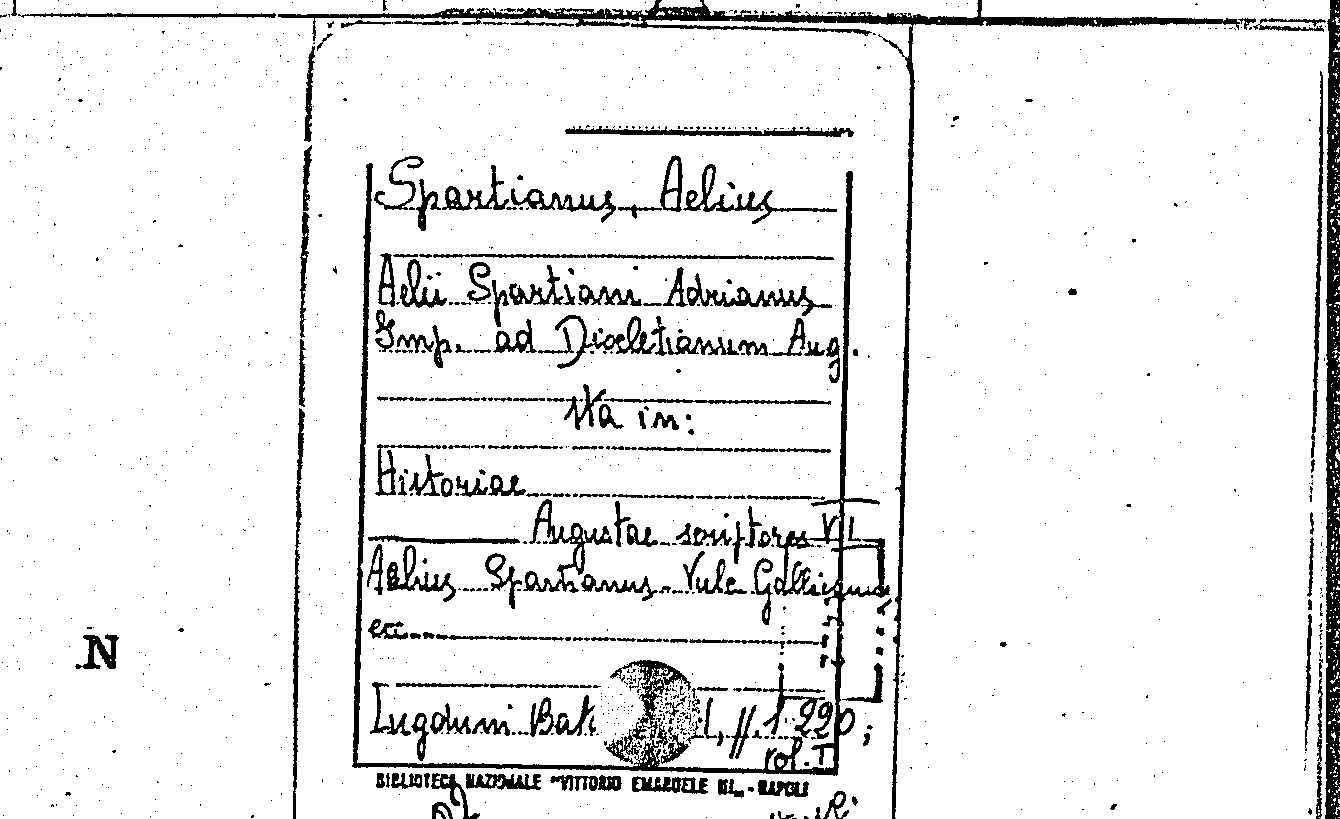 Spartianus, Aelius
Aelii Spartiani Adrianus
Imp. ad Diocletianum Aug.
sta in:
Historiae
Augustae scriptores VI
Aelius Spartianus. Vulc Gallicanus
etc.....
N
Lugduni Bat. 1, pp. 1 220;
vol. I
BIBLIOTECA NAZIONALE "VITTORIO EMANUELE III„ - NAPOLI